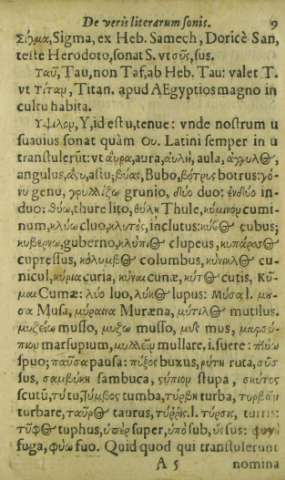 De veris literarum sonis. 9
Σίγμα, Sigma, ex Heb. Samech, Doricè San,
teste Herodoto, sonat S. vt σῦς, sus.
Ταῦ, Tau, non Taf, ab Heb. Tau: valet T.
vt Τίταν, Titan. apud AEgyptios magno in
cultu habita.
Υψιλον, Y, id est u, tenue: vnde nostrum u
suauius sonat quàm Ου. Latini semper in u
transtulerūt: vt αὔρα, aura, αὐλὴ, aula, ἀγκυλΘ,
angulus, ἄςυ, astu; βύας, Bubo, βότρυς botrus: γό-
νυ genu, γρυλλίζω grunio, δύο duo: ἐνδύω in-
duo: θύω, thure lito, θύλη Thule, κύμινον cumi-
num, κλύω cluo, κλυτὸς, inclutus: κύβΘ cubus;
κυβερνῶ, guberno, κλύπεΘ clupeus, κυπάρισΘ
cupressus, κόλυμβΘ columbus, κύνικλΘ cu-
nicul, κύρια curia, κύναι Cunæ, κύτΘ cutis, Κύ-
μαι Cumæ: λύω luo, λύκΘ lupus: Μῦσα l. μου-
σα Musa, μύραινα Muræna, μύτιλΘ mutilus.
musso, μύζω musso, μῦς mus, μαρσύ-
πιον marsupium, mullare, i. suere: πτύω
spuo; παῦσα pausa: πύξος buxus, ρυτὴ ruta, σῦς
sus, σαμβύκη sambuca, ςύπιον stupa, σκύτος
scutū, τύτυ, τύμβος tumba, τύρβη turba, τυρβᾶν
turbare, ταῦρΘ taurus, τύῤῥις l. τύρσις, turris:
τῦφΘ tuphus, ὑπὲρ super, ὑπὸ sub, ὕισυς: φυγὴ
fuga, φύω fuo. Quid quod qui transtulerunt
A 5 nomina